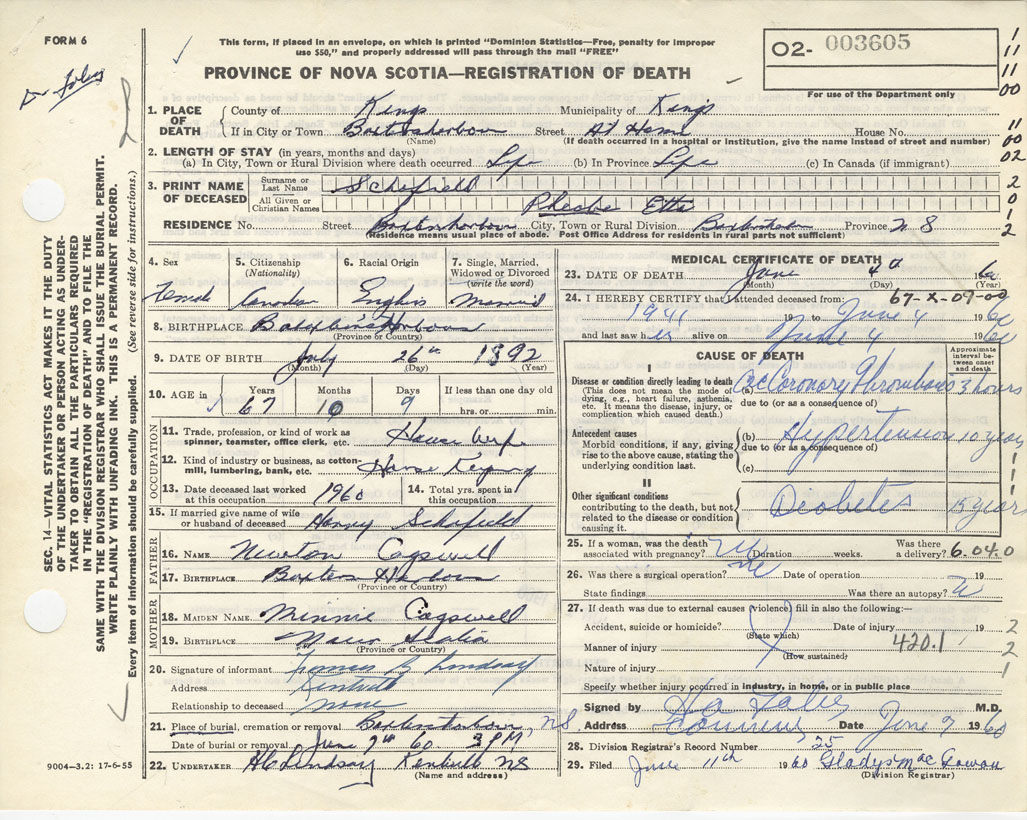 FORM 6
This form, if placed in an envelope, on which is printed "Dominion Statistics—Free, penalty for improper
use $50," and properly addressed will pass through the mail "FREE"
PROVINCE OF NOVA SCOTIA—REGISTRATION OF DEATH
02- 003605
For use of the Department only
1
11
11
00
11
00
02
2
0
1
2
Dr Foley
SEC. 14—VITAL STATISTICS ACT MAKES IT THE DUTY
OF THE UNDERTAKER OR PERSON ACTING AS UNDER-
TAKER TO OBTAIN ALL THE PARTICULARS REQUIRED
IN THE "REGISTRATION OF DEATH" AND TO FILE THE
SAME WITH THE DIVISION REGISTRAR WHO SHALL ISSUE THE BURIAL PERMIT.
WRITE PLAINLY WITH UNFADING INK. THIS IS A PERMANENT RECORD.
Every item of information should be carefully supplied. (See reverse side for instructions.)
1. PLACE OF DEATH County of Kings Municipality of Kings
If in City or Town Street At Home House No.
(Name) (If death occurred in a hospital or institution, give the name instead of street and number)
2. LENGTH OF STAY (in years, months and days)
(a) In City, Town or Rural Division where death occurred Life (b) In Province Life (c) In Canada (if immigrant)
3. PRINT NAME OF DECEASED Surname or Last Name Schofield
All Given or Christian Names Phoebe Etta
RESIDENCE No. Street City, Town or Rural Division Province N S
(Residence means usual place of abode. Post Office Address for residents in rural parts not sufficient)
4. Sex 5. Citizenship (Nationality) 6. Racial Origin 7. Single, Married, Widowed or Divorced (write the word)
Female Canadian English Married
8. BIRTHPLACE
(Province or Country)
9. DATE OF BIRTH July 26th 1892
(Month) (Day) (Year)
10. AGE in Years Months Days If less than one day old
67 10 9 hrs. or min.
OCCUPATION
11. Trade, profession, or kind of work as spinner, teamster, office clerk, etc. House Wife
12. Kind of industry or business, as cotton-mill, lumbering, bank, etc. House Keeping
13. Date deceased last worked at this occupation 1960 14. Total yrs. spent in this occupation
15. If married give name of wife or husband of deceased Schofield
FATHER
16. NAME Newton Cogswell
17. BIRTHPLACE
(Province or Country)
MOTHER
18. MAIDEN NAME Minnie Cogswell
19. BIRTHPLACE Nova Scotia
(Province or Country)
20. Signature of informant Frances B Lindsay
Address Kentville
Relationship to deceased none
21. Place of burial, cremation or removal NS
Date of burial or removal June 7th 60 3 PM
22. UNDERTAKER H C Lindsay Kentville NS
(Name and address)
9004-3.2: 17-6-55
MEDICAL CERTIFICATE OF DEATH
23. DATE OF DEATH June 4th 1960
(Month) (Day)
24. I HEREBY CERTIFY that I attended deceased from: 67-X-09-09
1941 19 to June 4 1960
and last saw her alive on June 4 1960
CAUSE OF DEATH
Approximate interval between onset and death
I
Disease or condition directly leading to death (a) Ac Coronary Thrombosis 3 hours
(This does not mean the mode of dying, e.g., heart failure, asthenia, etc. It means the disease, injury, or complication which caused death.)
due to (or as a consequence of)
Antecedent causes (b) Hypertension 10 years
Morbid conditions, if any, giving rise to the above cause, stating the underlying condition last.
due to (or as a consequence of)
(c)
II
Other significant conditions contributing to the death, but not related to the disease or condition causing it. Diabetes 15 years
25. If a woman, was the death associated with pregnancy? Duration weeks. Was there a delivery? 6.04.0
26. Was there a surgical operation? no Date of operation 19
State findings Was there an autopsy?
27. If death was due to external causes (violence) fill in also the following:—
Accident, suicide or homicide? Date of injury 19
(State which)
Manner of injury 420.1
(How sustained)
Nature of injury
Specify whether injury occurred in industry, in home, or in public place
2
2
1
Signed by M.D.
Address Date June 7 1960
28. Division Registrar's Record Number 25
29. Filed June 11th 1960 Gladys MacGowan
(Division Registrar)